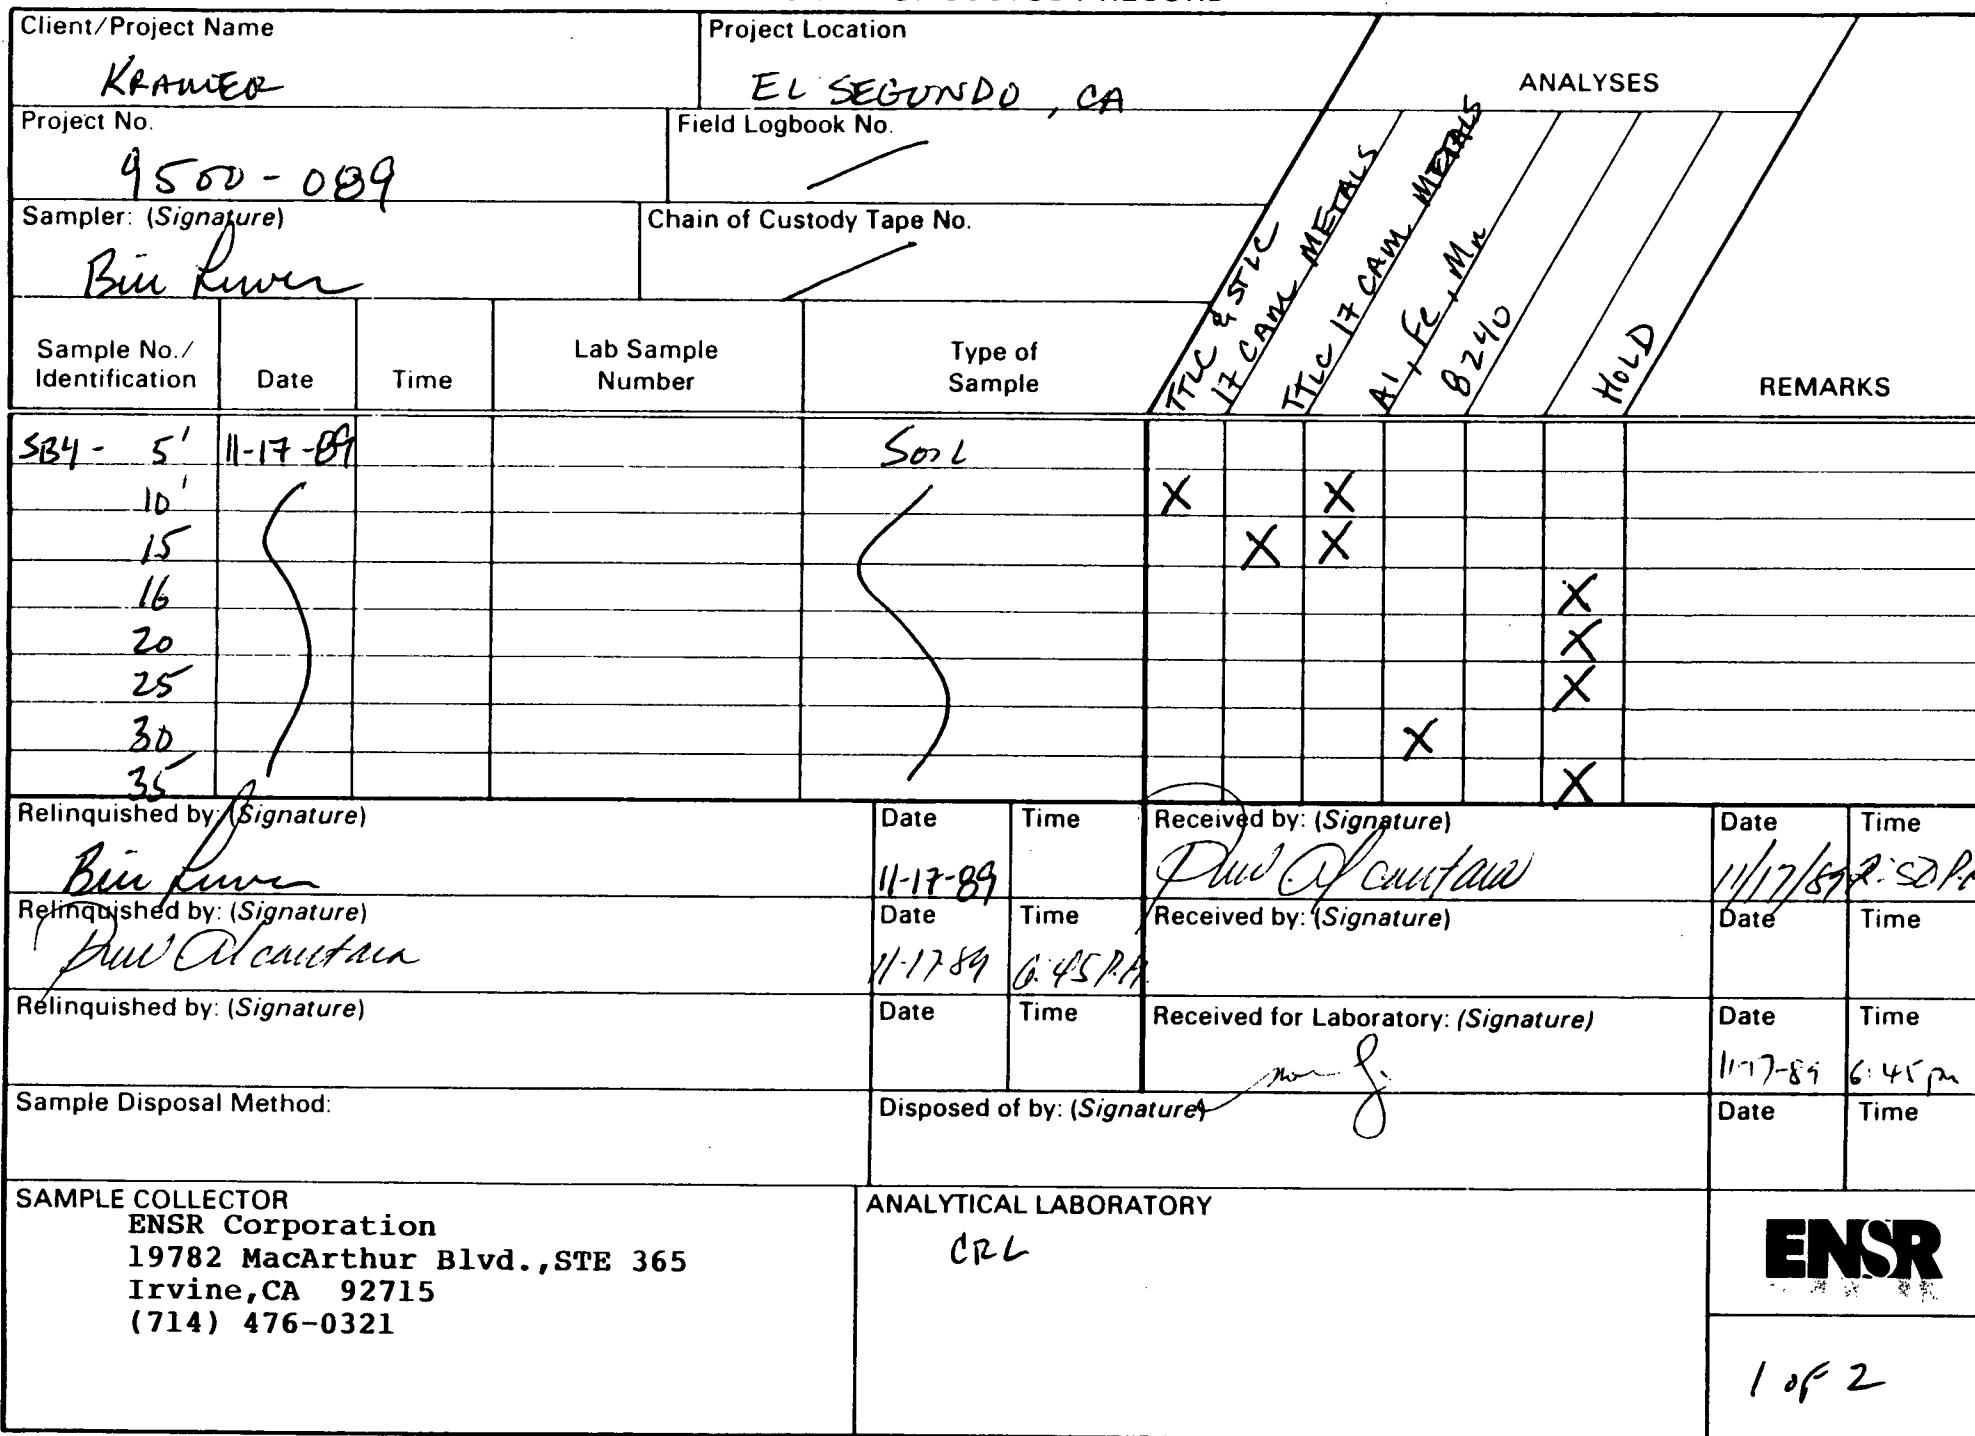 Client/Project Name
KRAMER
Project Location
EL SEGUNDO, CA
ANALYSES
Project No.
9500-089
Field Logbook No.
Sampler: (Signature)
Bill
Chain of Custody Tape No.
Sample No./
Identification
Date
Time
Lab Sample
Number
Type of
Sample
TTLC & STLC
17 CAM METALS
TTLC 17 CAM METALS
Al, Fe, Mn
8240
HOLD
REMARKS
SB4 - 5' 11-17-89 Soil
10' X X
15 X X
16 X
20 X
25 X
30 X
35 X
Relinquished by: (Signature)
Bill
Date
11-17-89
Time
Received by: (Signature)
Alcantara
Date
11/17/89
Time
2:50 P.M
Relinquished by: (Signature)
Alcantara
Date
11-17-89
Time
6:45 P.M
Received by: (Signature)
Date
Time
Relinquished by: (Signature)
Date
Time
Received for Laboratory: (Signature)
Date
11-17-89
Time
6:45 pm
Sample Disposal Method:
Disposed of by: (Signature)
Date
Time
SAMPLE COLLECTOR
ENSR Corporation
19782 MacArthur Blvd.,STE 365
Irvine,CA 92715
(714) 476-0321
ANALYTICAL LABORATORY
CRL
ENSR
1 of 2